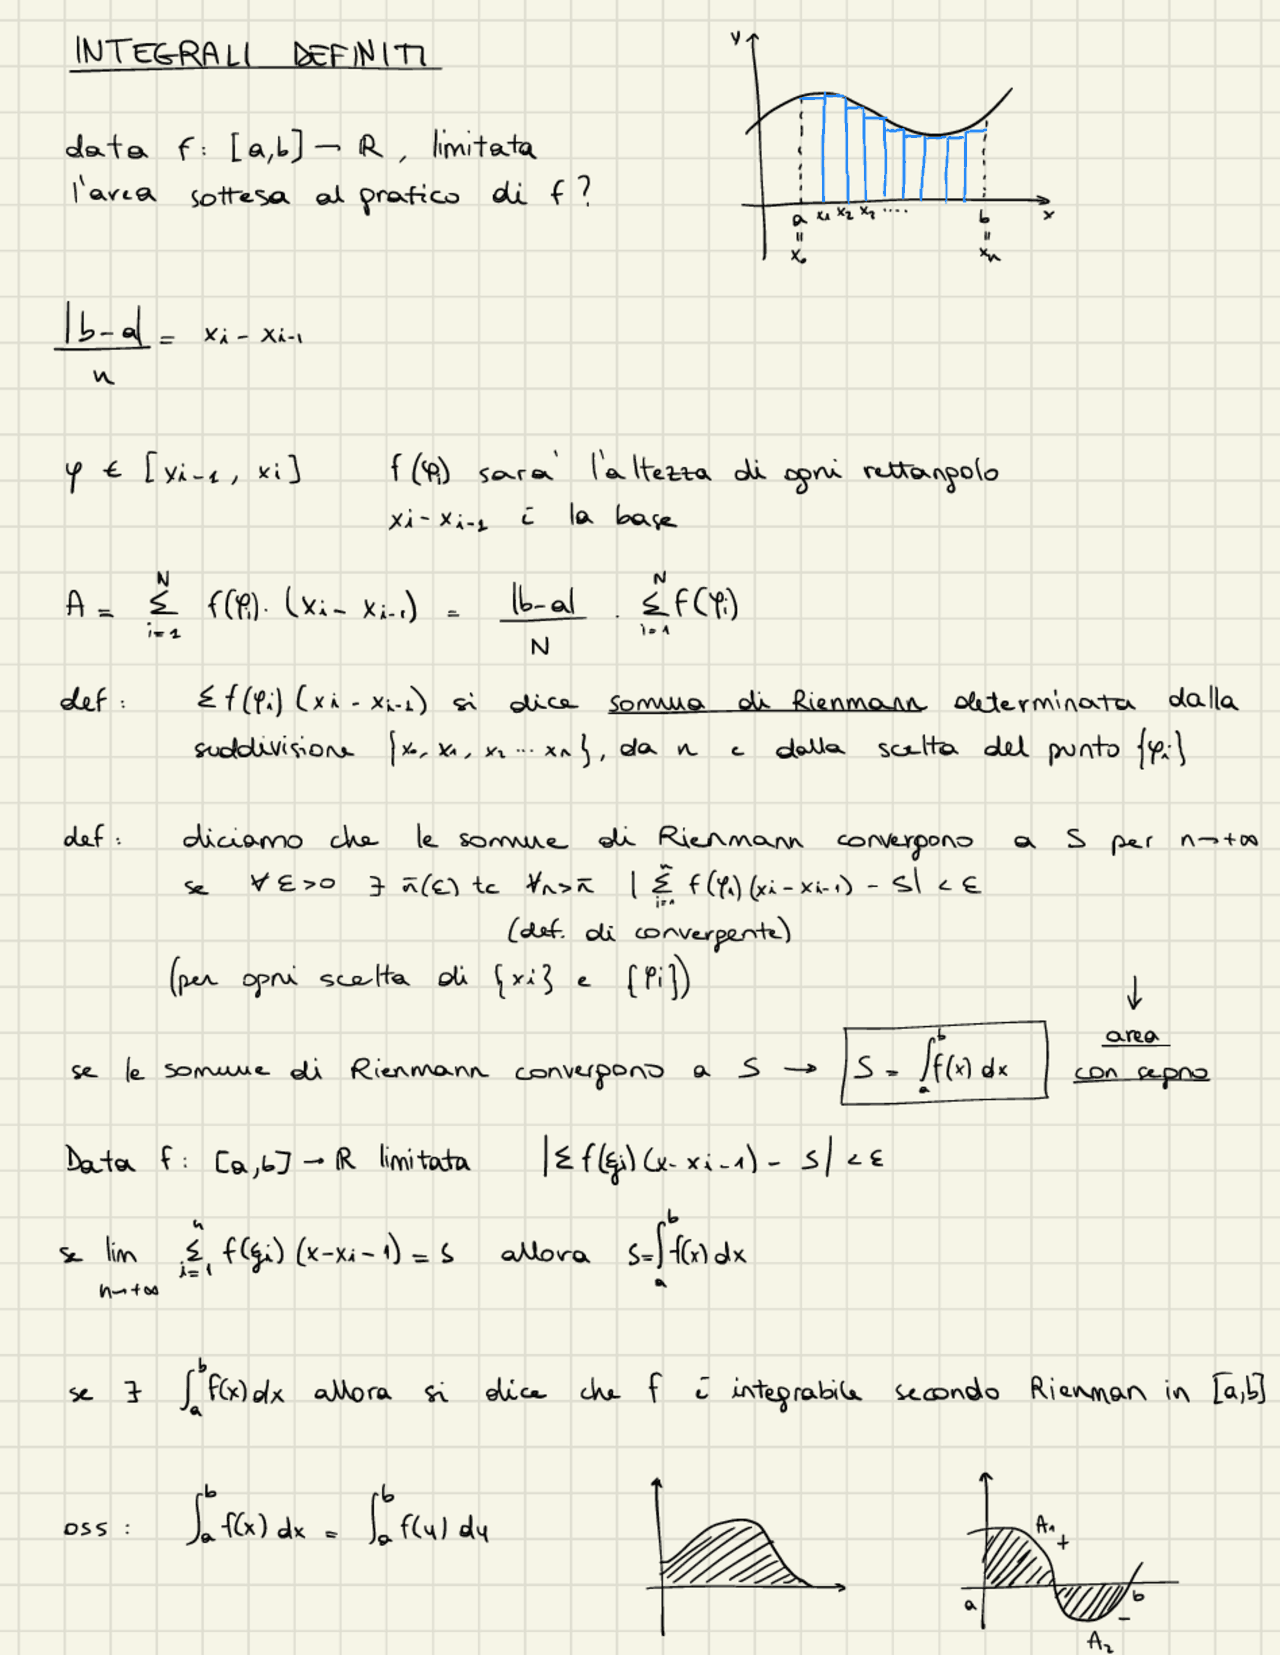 INTEGRALI DEFINITI
data f: [a,b] → R, limitata
l'area sottesa al grafico di f?
y
a x₁ x₂ x₃ .... b x
= =
x₀ xₙ
|b-a| / n = xi - xi-1
φ ∈ [xi-1, xi] f(φi) sara' l'altezza di ogni rettangolo
xi - xi-1 è la base
A = Σ_{i=1}^{N} f(φi)·(xi - xi-1) = |b-a| / N · Σ_{i=1}^{N} f(φi)
def: Σ f(φi)(xi - xi-1) si dice somma di Rienmann determinata dalla
suddivisione {x₀, x₁, x₂ ... xn}, da n e dalla scelta del punto {φi}
def: diciamo che le somme di Rienmann convergono a S per n→+∞
se ∀ε>0 ∃ n̄(ε) tc ∀n>n̄ |Σ_{i=1}^{n} f(φi)(xi - xi-1) - S| < ε
(def. di convergente)
(per ogni scelta di {xi} e {φi})
↓
area
con segno
se le somme di Rienmann convergono a S → S = ∫_a^b f(x) dx
Data f: [a,b] → R limitata |Σ f(ξi)(x - xi-1) - S| < ε
se lim_{n→+∞} Σ_{i=1}^{n} f(ξi)(x - xi - 1) = S allora S = ∫_a^b f(x) dx
se ∃ ∫_a^b f(x) dx allora si dice che f è integrabile secondo Rienman in [a,b]
oss: ∫_a^b f(x) dx = ∫_a^b f(y) dy
A₁ +
a b
-
A₂